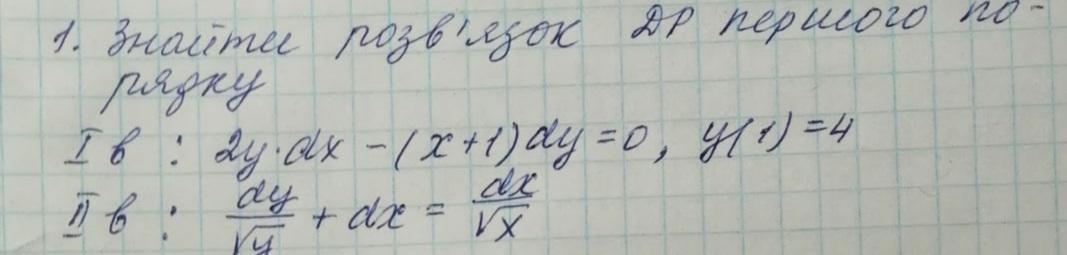 1. Знайти розв'язок ДР першого по-
рядку
I в : 2y·dx - (x+1)dy = 0, y(1) = 4
II в : dy/√y + dx = dx/√x